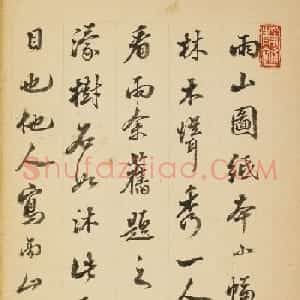 雨山圖紙本小幅
林木修秀一人
看雨余舊題之
濛樹石如沐此
目也他人寫雨山
Shufazijiao.com